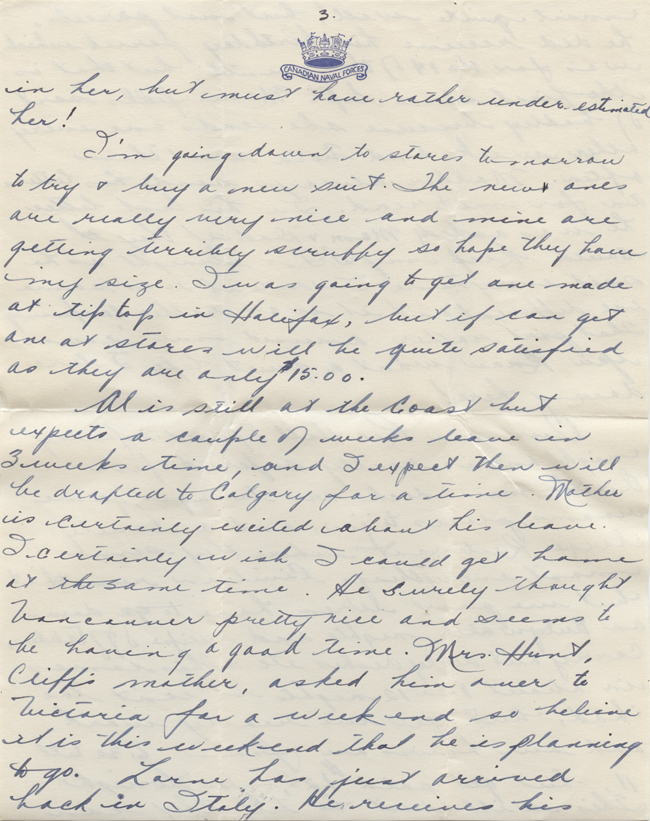 3.
CANADIAN NAVAL FORCES
in her, but must have rather under estimated
her!
I'm going down to stores tomorrow
to try & buy a new suit. The new ones
are really very nice and mine are
getting terribly scruffy so hope they have
my size. I was going to get one made
at tip top in Halifax, but if can get
one at stores will be quite satisfied
as they are only $15.00.
Al is still at the Coast but
expects a couple of weeks leave in
3 weeks time, and I expect then will
be drafted to Calgary for a time. Mother
is certainly excited about his leave.
I certainly wish I could get home
at the same time. He surely thought
Vancouver pretty nice and seems to
be having a good time. Mrs. Hunt,
Cliff's mother, asked him over to
Victoria for a week end so believe
it is this week end that he is planning
to go. Lorne has just arrived
back in Italy. He receives his